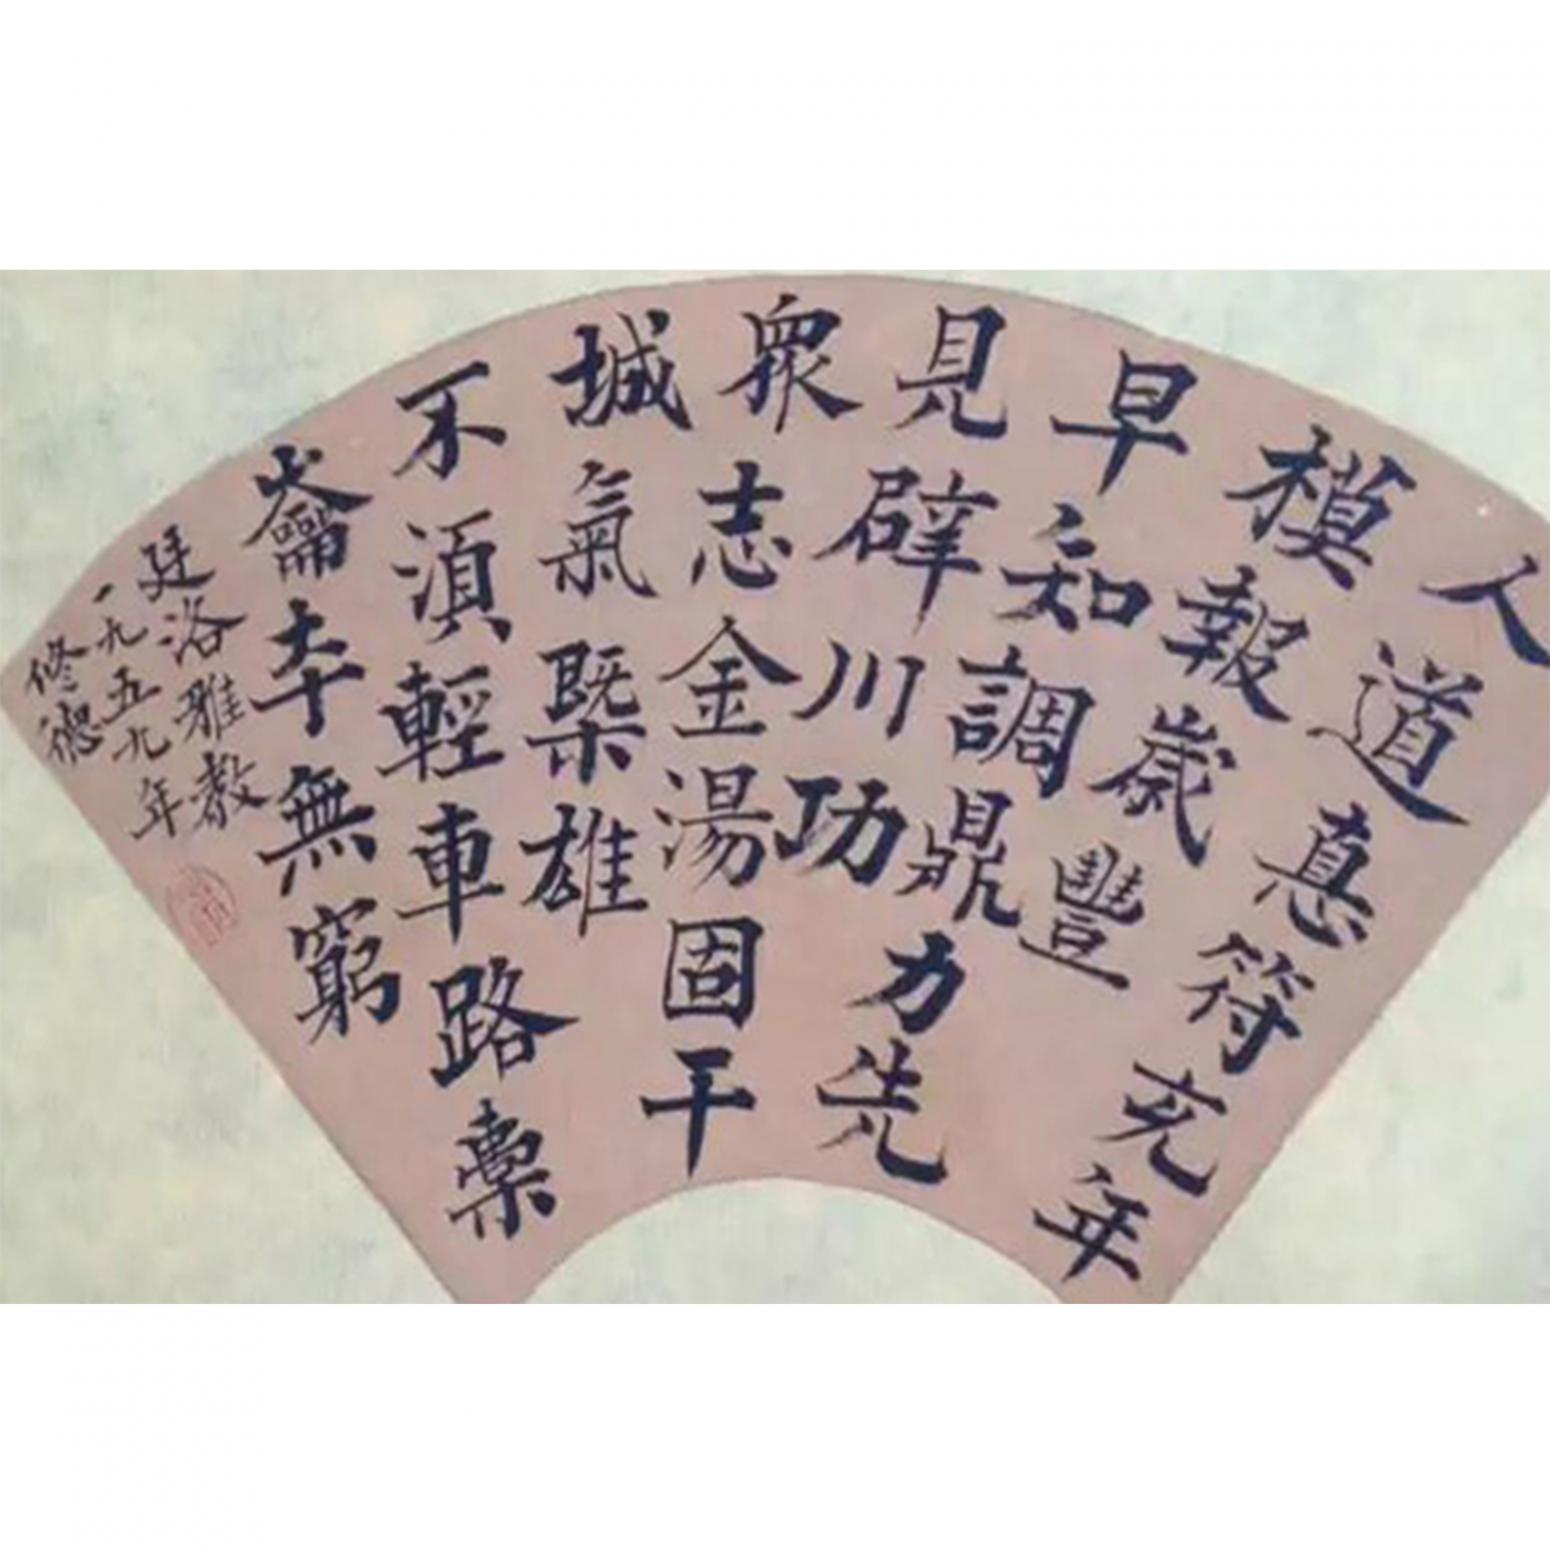 人道真符充年
模報歲豐
早知調鼎力先
見辟川功
眾志金湯固干
城氣槩雄
不湏輕車路橐
崙夲無窮
廷洛雅教
一九五九年
修德